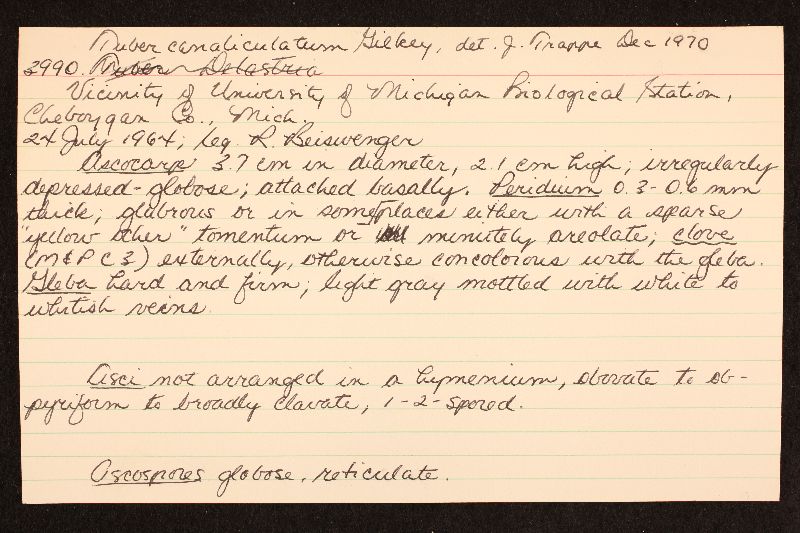 Tuber canaliculatum Gilkey, det. J. Trappe Dec 1970
3990. Tuber Delastria
Vicinity of University of Michigan Biological Station,
Cheboygan Co., Mich.
24 July 1964; leg. R. Beiswenger
Ascocarp 3.7 cm in diameter, 2.1 cm high; irregularly
depressed-globose; attached basally. Peridium 0.3-0.6 mm
thick; glabrous or in some places either with a sparse
"yellow ocher" tomentum or minutely areolate; clove
(M&P C3) externally, otherwise concolorous with the gleba.
Gleba hard and firm; light gray mottled with white to
whitish veins.
Asci not arranged in a hymenium, obovate to ob-
pyriform to broadly clavate, 1-2-spored.
Ascospores globose, reticulate.